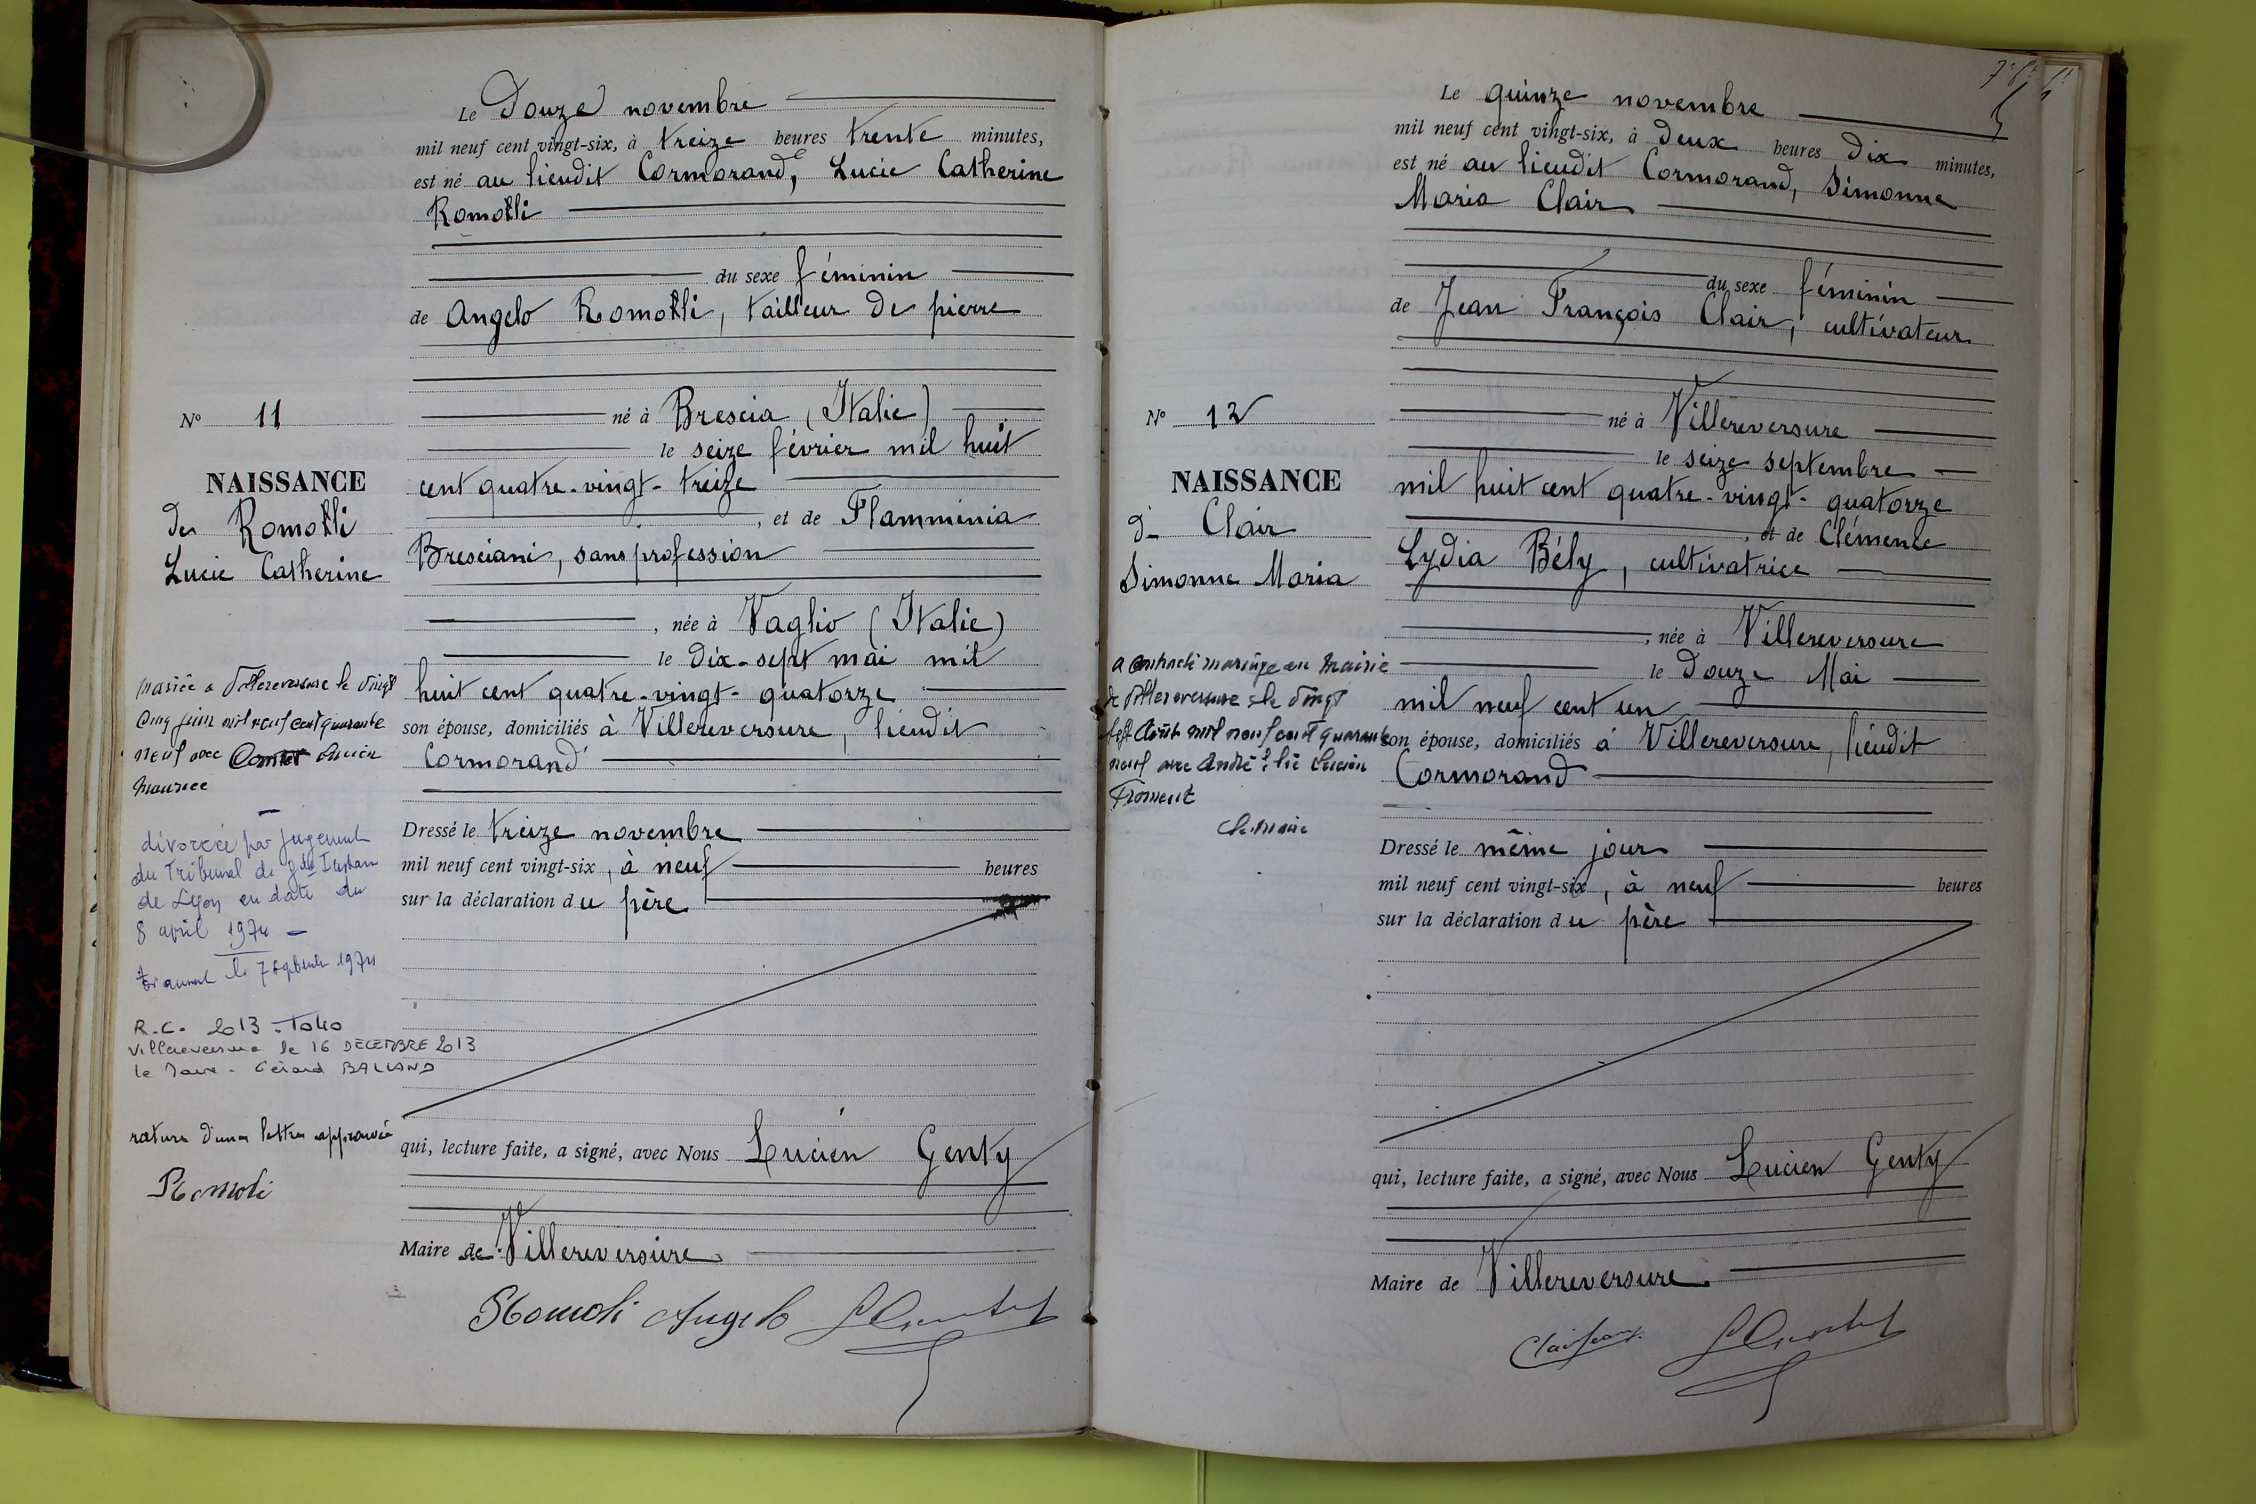 Le Douze novembre
mil neuf cent vingt-six, à treize heures trente minutes,
est né au lieudit Cormorand, Lucie Catherine
Romolli
du sexe féminin
de Angelo Romolli, tailleur de pierre
né à Brescia (Italie)
le seize février mil huit
cent quatre-vingt-treize
, et de Flamminia
Bresciani, sans profession
, née à Vaglio (Italie)
le dix-sept mai mil
huit cent quatre-vingt-quatorze
son épouse, domiciliés à Villereversure, lieudit
Cormorand
Dressé le treize novembre
mil neuf cent vingt-six, à neuf heures
sur la déclaration du père
qui, lecture faite, a signé, avec Nous Lucien Genty
Maire de Villereversure
Romoli Angelo
N° 11
NAISSANCE
De Romolli
Lucie Catherine
mariée à Villereversure le vingt
cinq juin mil neuf cent quarante
neuf avec Lucien
Maurice
divorcée par jugement
du Tribunal de Gde Instance
de Lyon en date du
8 avril 1974
le 7 septembre 1974
R.C. 2013
Villereversure le 16 DECEMBRE 2013
le Maire - Gérard BALLAND
rature d'une lettre approuvée
Romoli
Le quinze novembre
mil neuf cent vingt-six, à deux heures dix minutes,
est né au lieudit Cormorand, Simonne
Maria Clair
du sexe féminin
de Jean François Clair, cultivateur
né à Villereversure
le seize septembre
mil huit cent quatre-vingt-quatorze
, et de Clémence
Lydia Bély, cultivatrice
, née à Villereversure
le Douze Mai
mil neuf cent un
son épouse, domiciliés à Villereversure, lieudit
Cormorand
Dressé le même jour
mil neuf cent vingt-six, à neuf heures
sur la déclaration du père
qui, lecture faite, a signé, avec Nous Lucien Genty
Maire de Villereversure
Clair Jean
N° 12
NAISSANCE
d Clair
Simonne Maria
a contracté mariage en mairie
de Villereversure le vingt
sept Août mil neuf cent quarante
neuf avec André Lucien
Froment
Le maire